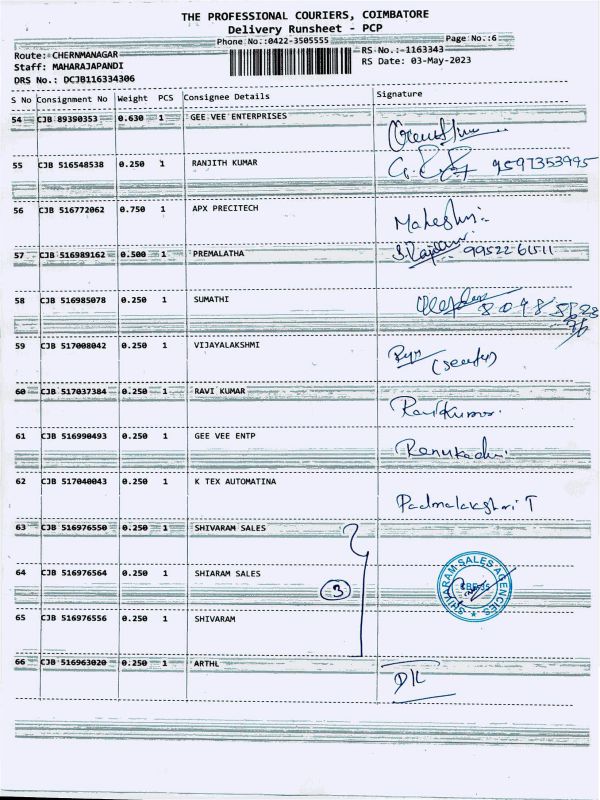 THE PROFESSIONAL COURIERS, COIMBATORE
Delivery Runsheet - PCP
Phone No.:0422-3505555 Page No.:6
Route: CHERNMANAGAR RS No.: 1163343
Staff: MAHARAJAPANDI RS Date: 03-May-2023
DRS No.: DCJB116334306
S No Consignment No Weight PCS Consignee Details Signature
54 CJB 89390353 0.630 1 GEE VEE ENTERPRISES
55 CJB 516548538 0.250 1 RANJITH KUMAR 9597353995
56 CJB 516772062 0.750 1 APX PRECITECH
Maheshri
57 CJB 516989162 0.500 1 PREMALATHA 99522 61511
58 CJB 516985078 0.250 1 SUMATHI
59 CJB 517008042 0.250 1 VIJAYALAKSHMI
60 CJB 517037384 0.250 1 RAVI KUMAR
Ravikumar.
61 CJB 516990493 0.250 1 GEE VEE ENTP
Renukadevi
62 CJB 517040043 0.250 1 K TEX AUTOMATINA
Padmalakshmi T
63 CJB 516976550 0.250 1 SHIVARAM SALES
64 CJB 516976564 0.250 1 SHIARAM SALES
3
SHIVARAM SALES AGENCIES
65 CJB 516976556 0.250 1 SHIVARAM
66 CJB 516963020 0.250 1 ARTHL
D/L